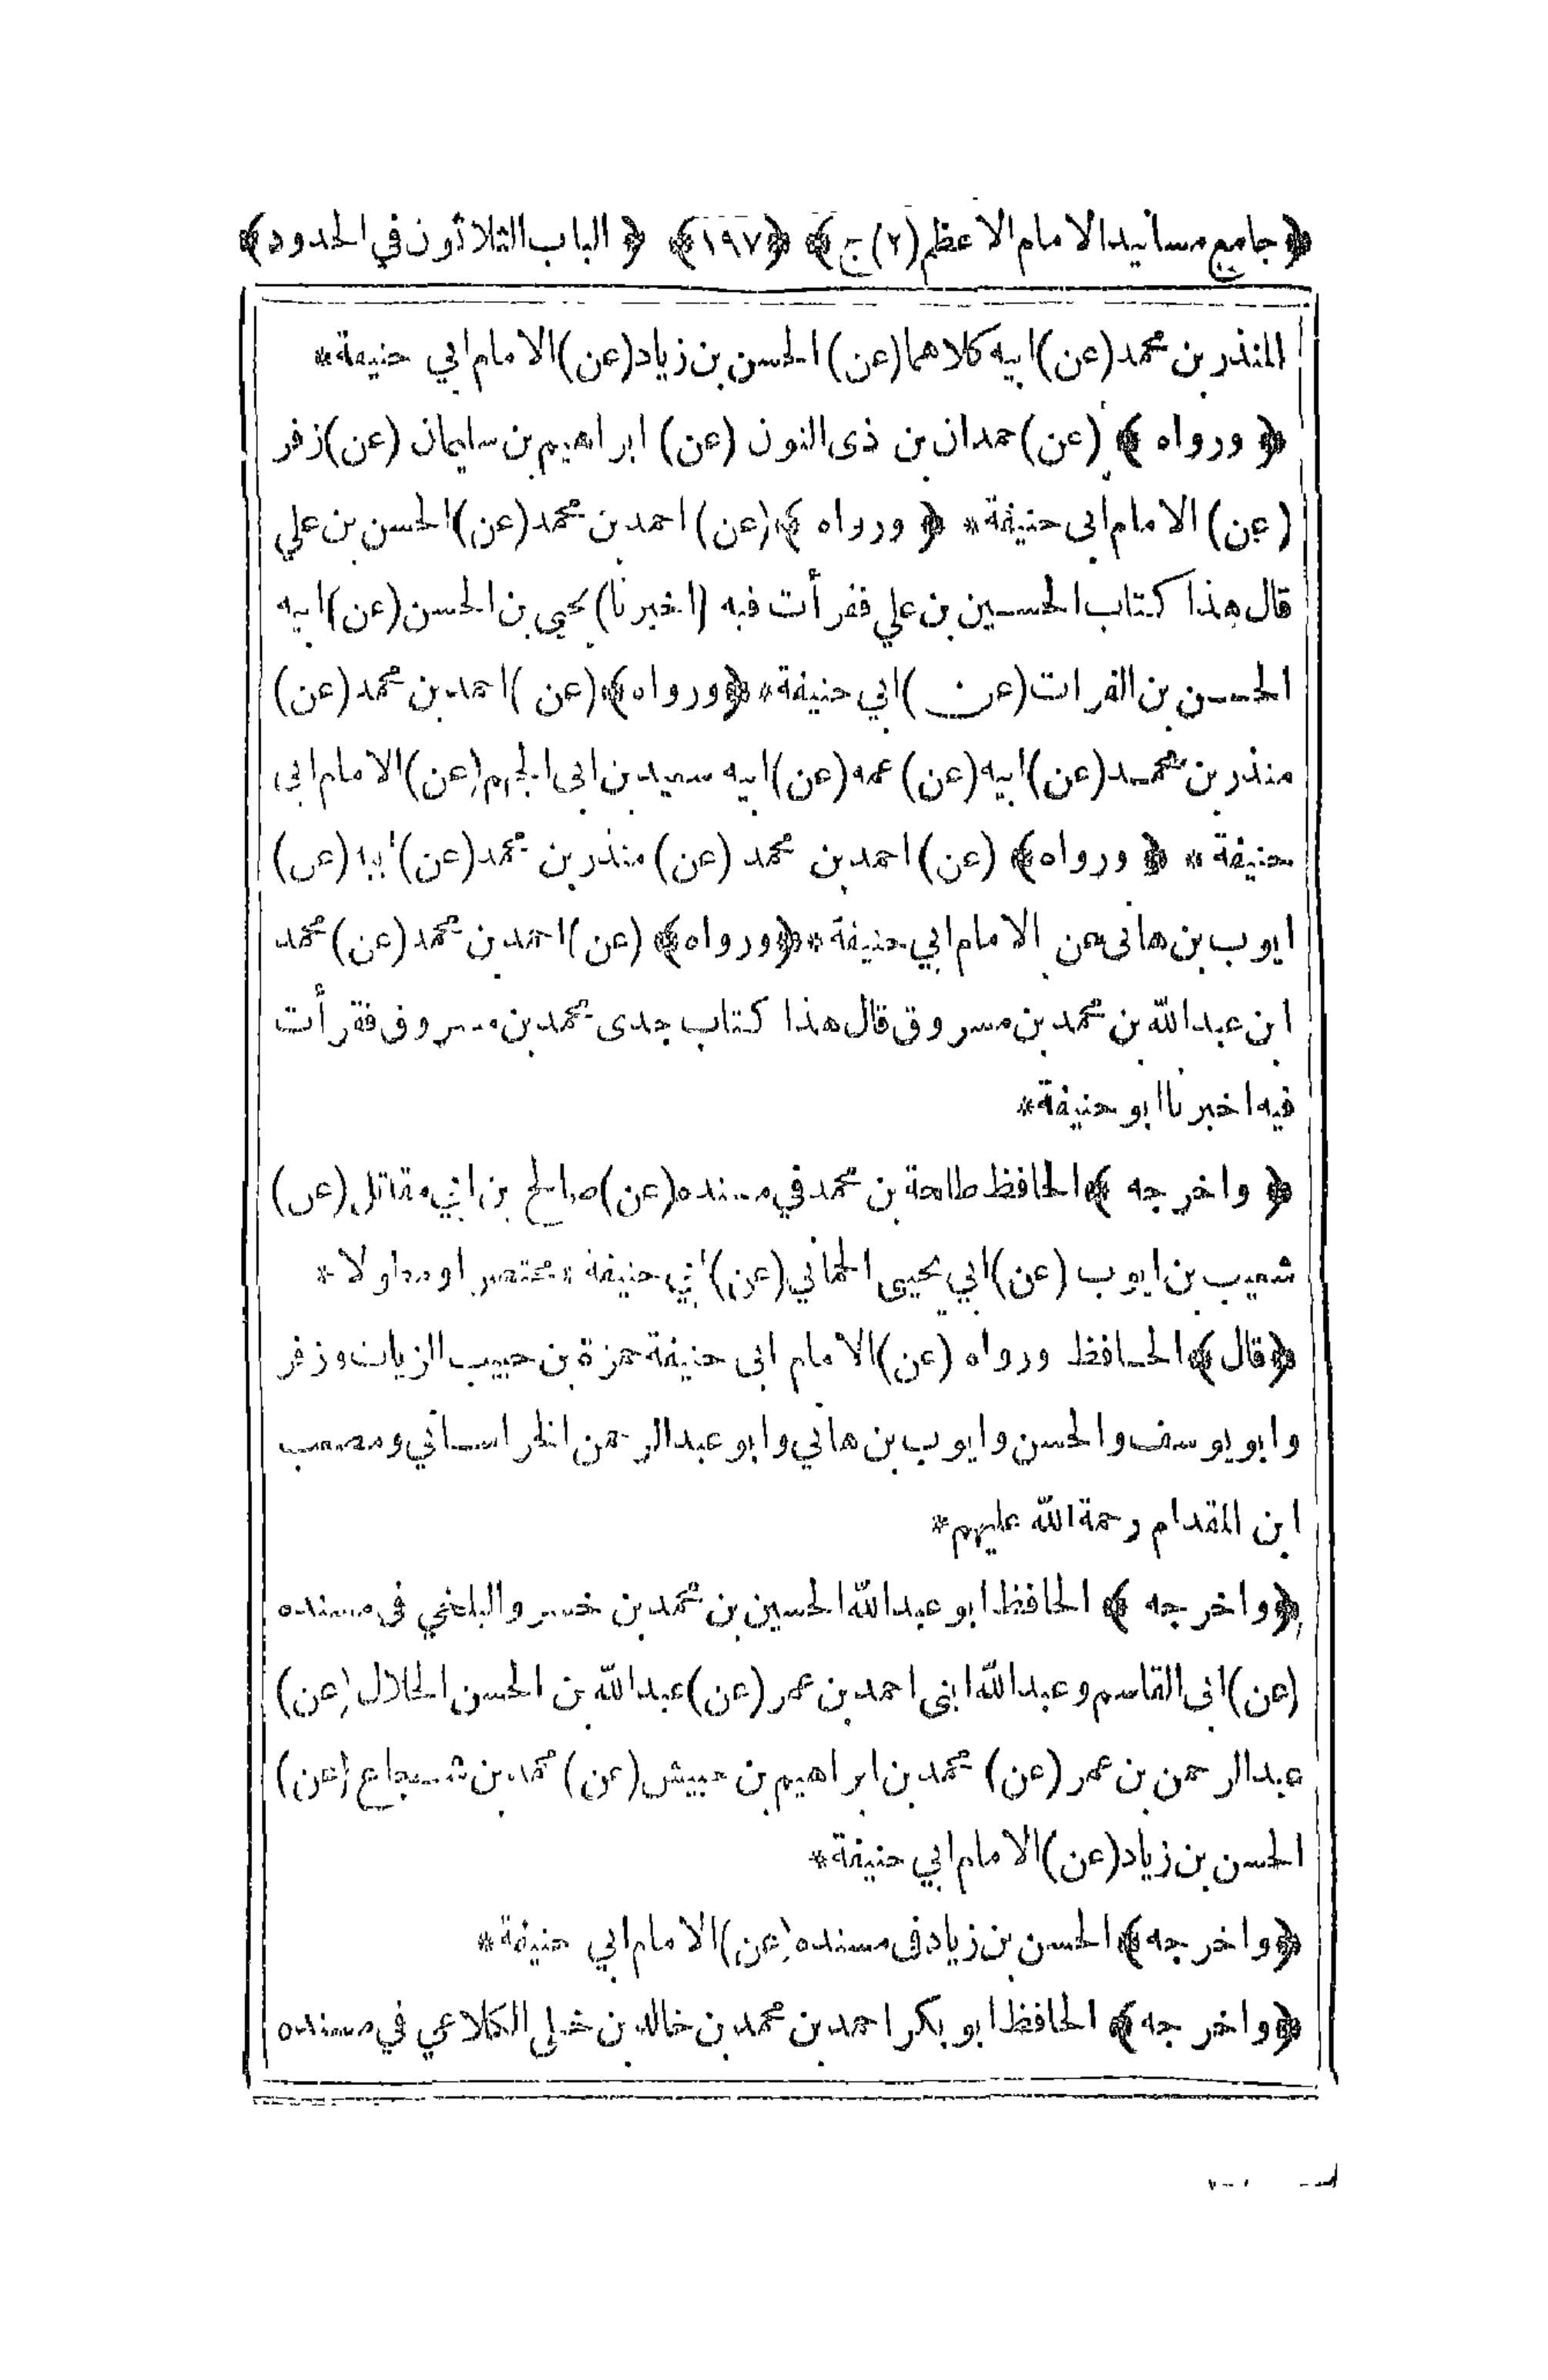 ﴿ جامع مسانيد الامام الاعظم (٢) ج ﴾ ﴿ ١٩٧ ﴾ ﴿ الباب الثلاثون في الحدود ﴾
المنذر بن محمد (عن) ابيه كلاهما (عن) الحسن بن زياد (عن) الامام ابي حنيفة *
﴿ ورواه ﴾ (عن) حمدان بن ذى النون (عن) ابراهيم بن سليمان (عن) زفر
(عن) الامام ابى حنيفة * ﴿ ورواه ﴾ (عن) احمد بن محمد (عن) الحسن بن علي
قال هذا كتاب الحسين بن علي فقرأت فيه (اخبرنا) يحيى بن الحسن (عن) ابيه
الحسن بن الفرات (عن) ابي حنيفة * ﴿ ورواه ﴾ (عن) احمد بن محمد (عن)
منذر بن محمد (عن) ابيه (عن) عمه (عن) ابيه سعيد بن ابى الجهم (عن) الامام ابى
حنيفة * ﴿ ورواه ﴾ (عن) احمد بن محمد (عن) منذر بن محمد (عن) ابيه (عن)
ايوب بن هانى عن الامام ابي حنيفة * ﴿ ورواه ﴾ (عن) احمد بن محمد (عن) محمد
ابن عبد الله بن محمد بن مسروق قال هذا كتاب جدى محمد بن مسروق فقرأت
فيه اخبرنا ابو حنيفة *
﴿ واخرجه ﴾ الحافظ طلحة بن محمد في مسنده (عن) صالح بن ابي مقاتل (عن)
شعيب بن ايوب (عن) ابي يحيى الحماني (عن) ابي حنيفة * مختصرا ومطولا *
﴿ قال ﴾ الحافظ ورواه (عن) الامام ابى حنيفة حمزة بن حبيب الزيات وزفر
وابو يوسف والحسن وايوب بن هاني وابو عبد الرحمن الخراساني ومصعب
ابن المقدام رحمة الله عليهم *
﴿ واخرجه ﴾ الحافظ ابو عبد الله الحسين بن محمد بن خسرو البلخي فى مسنده
(عن) ابى القاسم وعبد الله ابنى احمد بن عمر (عن) عبد الله بن الحسن الخلال (عن)
عبد الرحمن بن عمر (عن) محمد بن ابراهيم بن حبيش (عن) محمد بن شجاع (عن)
الحسن بن زياد (عن) الامام ابي حنيفة *
﴿ واخرجه ﴾ الحسن بن زياد فى مسنده (عن) الامام ابي حنيفة *
﴿ واخرجه ﴾ الحافظ ابو بكر احمد بن محمد بن خالد بن خلى الكلاعي في مسنده